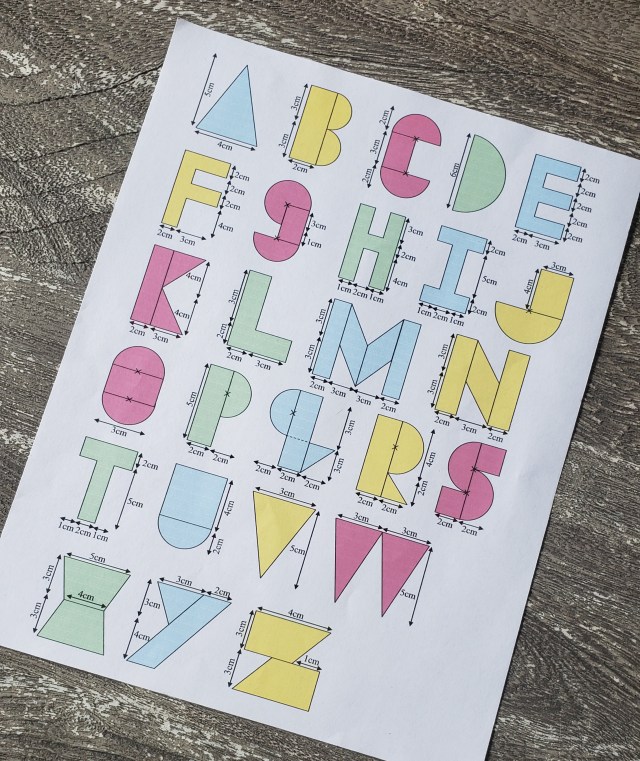 5cm
4cm
3cm
3cm
2cm
2cm
3cm
2cm
6cm
2cm
2cm
2cm
2cm
3cm
2cm
2cm
2cm
4cm
2cm
3cm
3cm
1cm
3cm
2cm
4cm
1cm
2cm
1cm
5cm
2cm
1cm
2cm
1cm
3cm
4cm
4cm
4cm
2cm
3cm
3cm
2cm
3cm
3cm
3cm
2cm
3cm
3cm
2cm
3cm
3cm
2cm
3cm
2cm
3cm
5cm
2cm
2cm
3cm
3cm
2cm
2cm
4cm
2cm
2cm
2cm
2cm
2cm
2cm
5cm
1cm
2cm
1cm
4cm
2cm
3cm
5cm
3cm
3cm
5cm
5cm
3cm
4cm
3cm
3cm
2cm
3cm
4cm
4cm
3cm
1cm
3cm